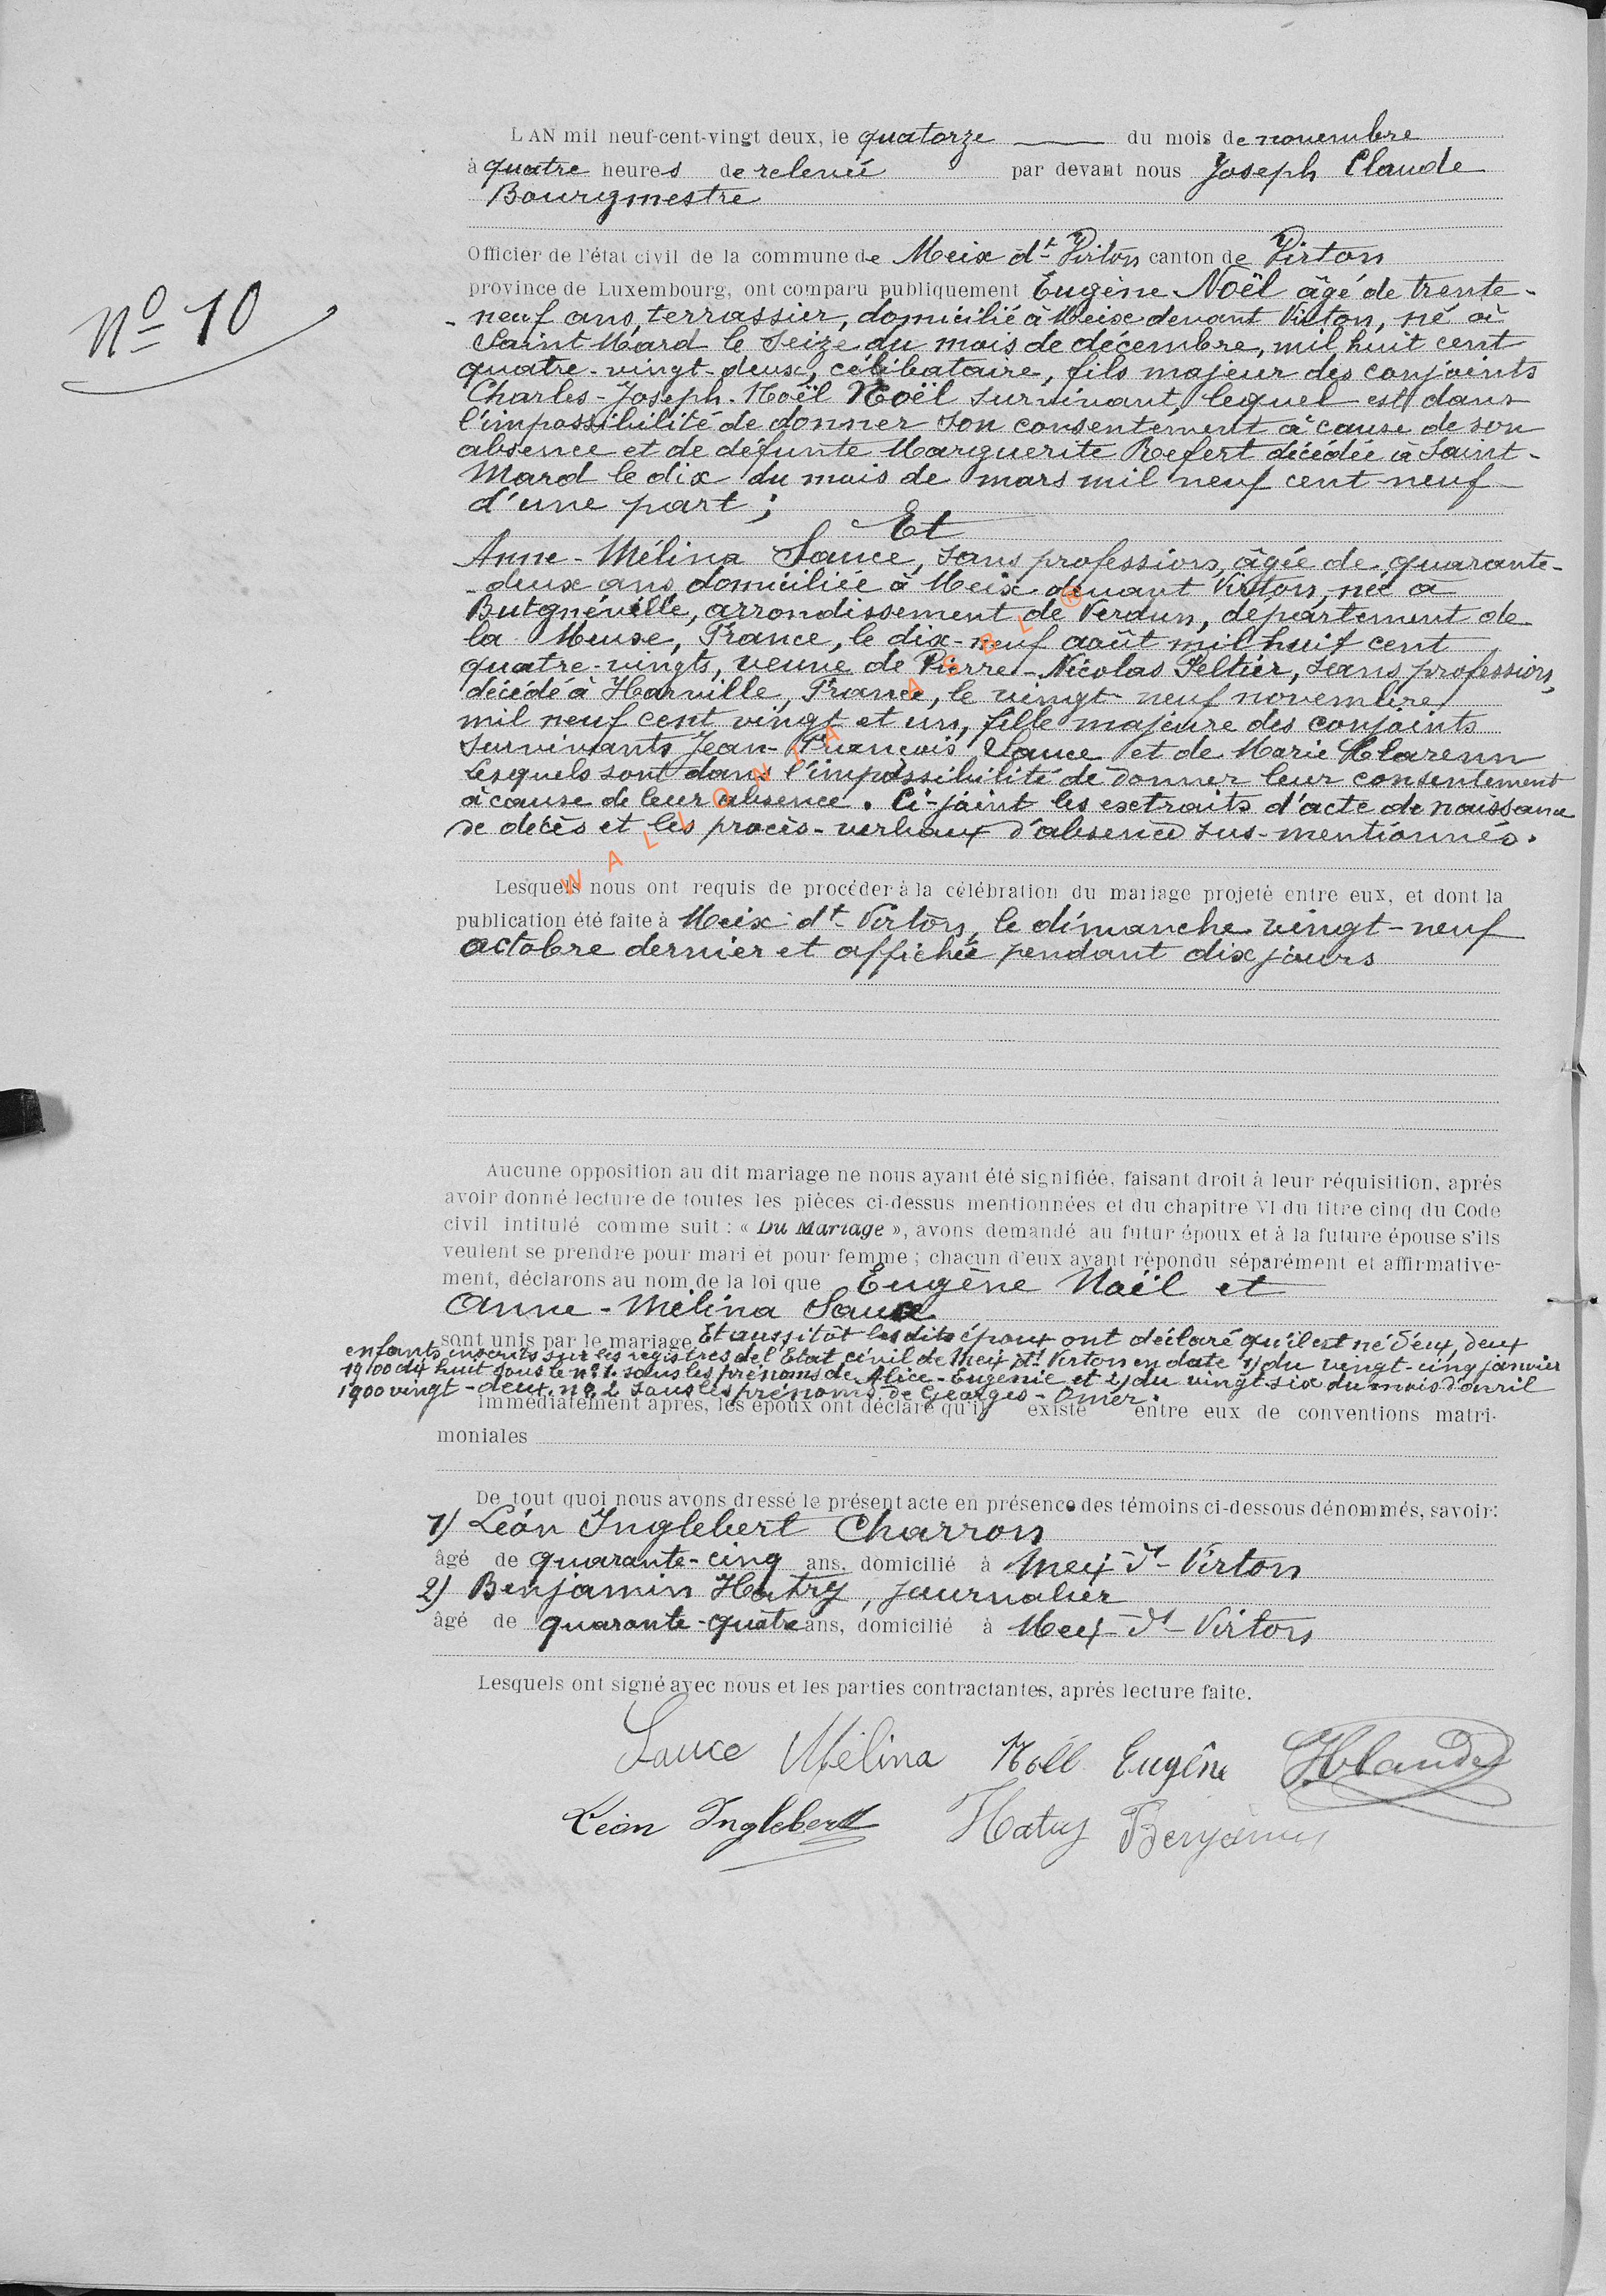 L'AN mil neuf-cent-vingt deux, le quatorze du mois de novembre
à quatre heures de relevée par devant nous Joseph Claude
Bourgmestre
Officier de l'état civil de la commune de Meix dt Virton canton de Virton
province de Luxembourg, ont comparu publiquement Eugène Noël âgé de trente-
N° 10
-neuf ans, terrassier, domicilié à Meix devant Virton, né à
Saint Mard le seize du mois de décembre, mil huit cent
quatre-vingt-deux, célibataire, fils majeur des conjoints
Charles-Joseph-Noël Noël survivant, lequel est dans
l'impossibilité de donner son consentement à cause de son
absence et de défunte Marguerite Refert décédée à Saint-
Mard le dix du mois de mars mil neuf cent neuf
d'une part;
Et
Anne-Mélina Sauce, sans profession, âgée de quarante-
-deux ans, domiciliée à Meix devant Virton, née à
Butgnéville, arrondissement de Verdun, département de
la Meuse, France, le dix-neuf août mil huit cent
quatre-vingts, veuve de Pierre-Nicolas Peltier, sans profession,
décédé à Harville, France, le vingt-neuf novembre
mil neuf cent vingt et un, fille majeure des conjoints
survivants Jean-François Sauce et de Marie
Lesquels sont dans l'impossibilité de donner leur consentement
à cause de leur absence. Ci-joint les extraits d'acte de naissance
de décès et les procès-verbaux d'absence sus-mentionnés.
WALLONIA ASBL ®
Lesquels nous ont requis de procéder à la célébration du mariage projeté entre eux, et dont la
publication été faite à Meix-dt-Virton, le dimanche vingt-neuf
octobre dernier et affichée pendant dix jours
Aucune opposition au dit mariage ne nous ayant été signifiée, faisant droit à leur réquisition, après
avoir donné lecture de toutes les pièces ci-dessus mentionnées et du chapitre VI du titre cinq du Code
civil intitulé comme suit : « Du Mariage », avons demandé au futur époux et à la future épouse s'ils
veulent se prendre pour mari et pour femme ; chacun d'eux ayant répondu séparément et affirmative-
ment, déclarons au nom de la loi que Eugène Noël et
Anne-Mélina Sauce
sont unis par le mariage Et aussitôt les dits époux ont déclaré qu'il est né d'eux, deux
enfants inscrits sur les registres de l'Etat civil de Meix dt Virton en date 1) du vingt-cinq janvier
huit sous le n° 1. sous les prénoms de Alice-Eugénie et 2) du vingt-six du mois d'avril
1900 vingt-deux. n° 2 sous les prénoms de Georges-Omer.
Immédiatement après, les époux ont déclaré qu'il existe entre eux de conventions matri-
moniales
De tout quoi nous avons dressé le présent acte en présence des témoins ci-dessous dénommés, savoir:
1) Léon Inglebert Charron
âgé de quarante-cinq ans, domicilié à Meix-dt-Virton
2) Benjamin Hatry, journalier
âgé de quarante-quatre ans, domicilié à Meix-dt-Virton
Lesquels ont signé avec nous et les parties contractantes, après lecture faite.
Sauce Mélina Noël Eugène JClaude
Léon Inglebert Hatry Benjamin